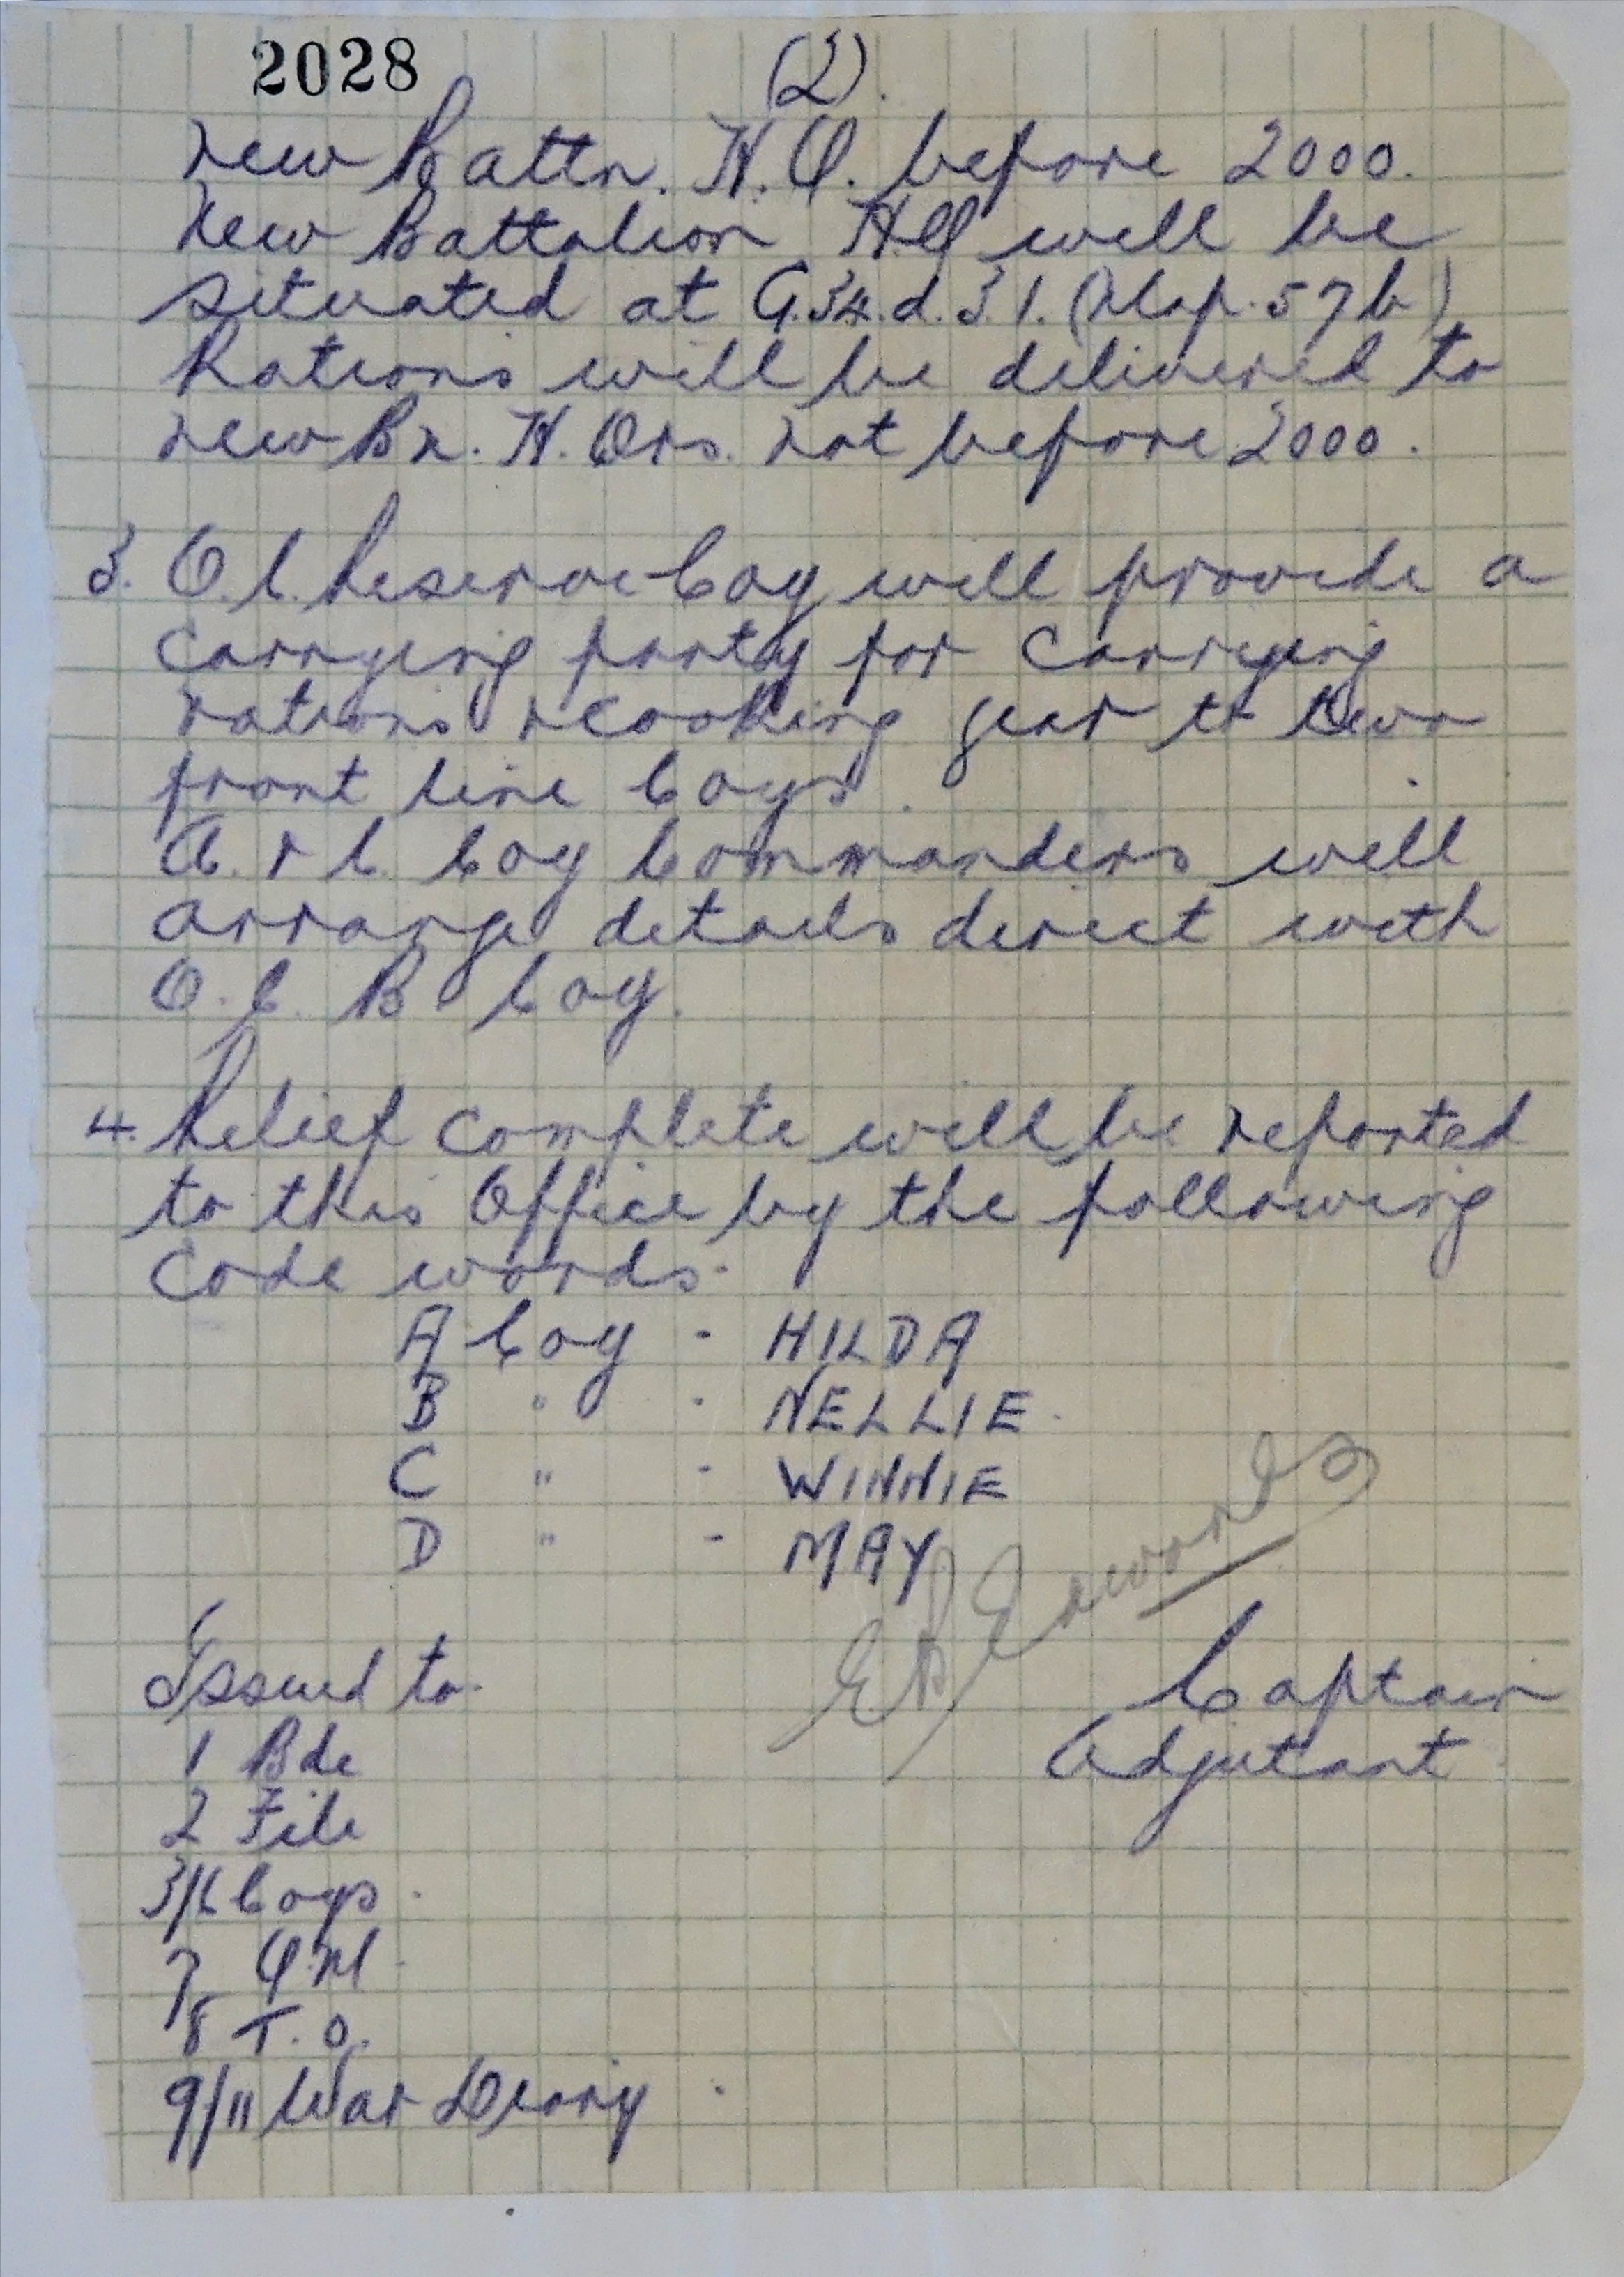 2028
(2).
new Battn. H.Q. before 2000.
New Battalion HQ will be
situated at G.34.d.3.1. (Map. 57b)
Rations will be delivered to
new Bn. H. Qrs. not before 2000.
3. O.C. Reserve Coy will provide a
carrying party for carrying
rations & cooking gear to two
front line Coys.
A. & C. Coy Commanders will
arrange details direct with
O.C. B Coy.
4. Relief complete will be reported
to this Office by the following
code words.
A Coy - HILDA
B " - NELLIE.
C " - WINNIE
D " - MAY
Edwards
Captain
Adjutant
Issued to
1 Bde
2 File
3/6 Coys.
7 QM.
8 T.O.
9/11 War Diary.